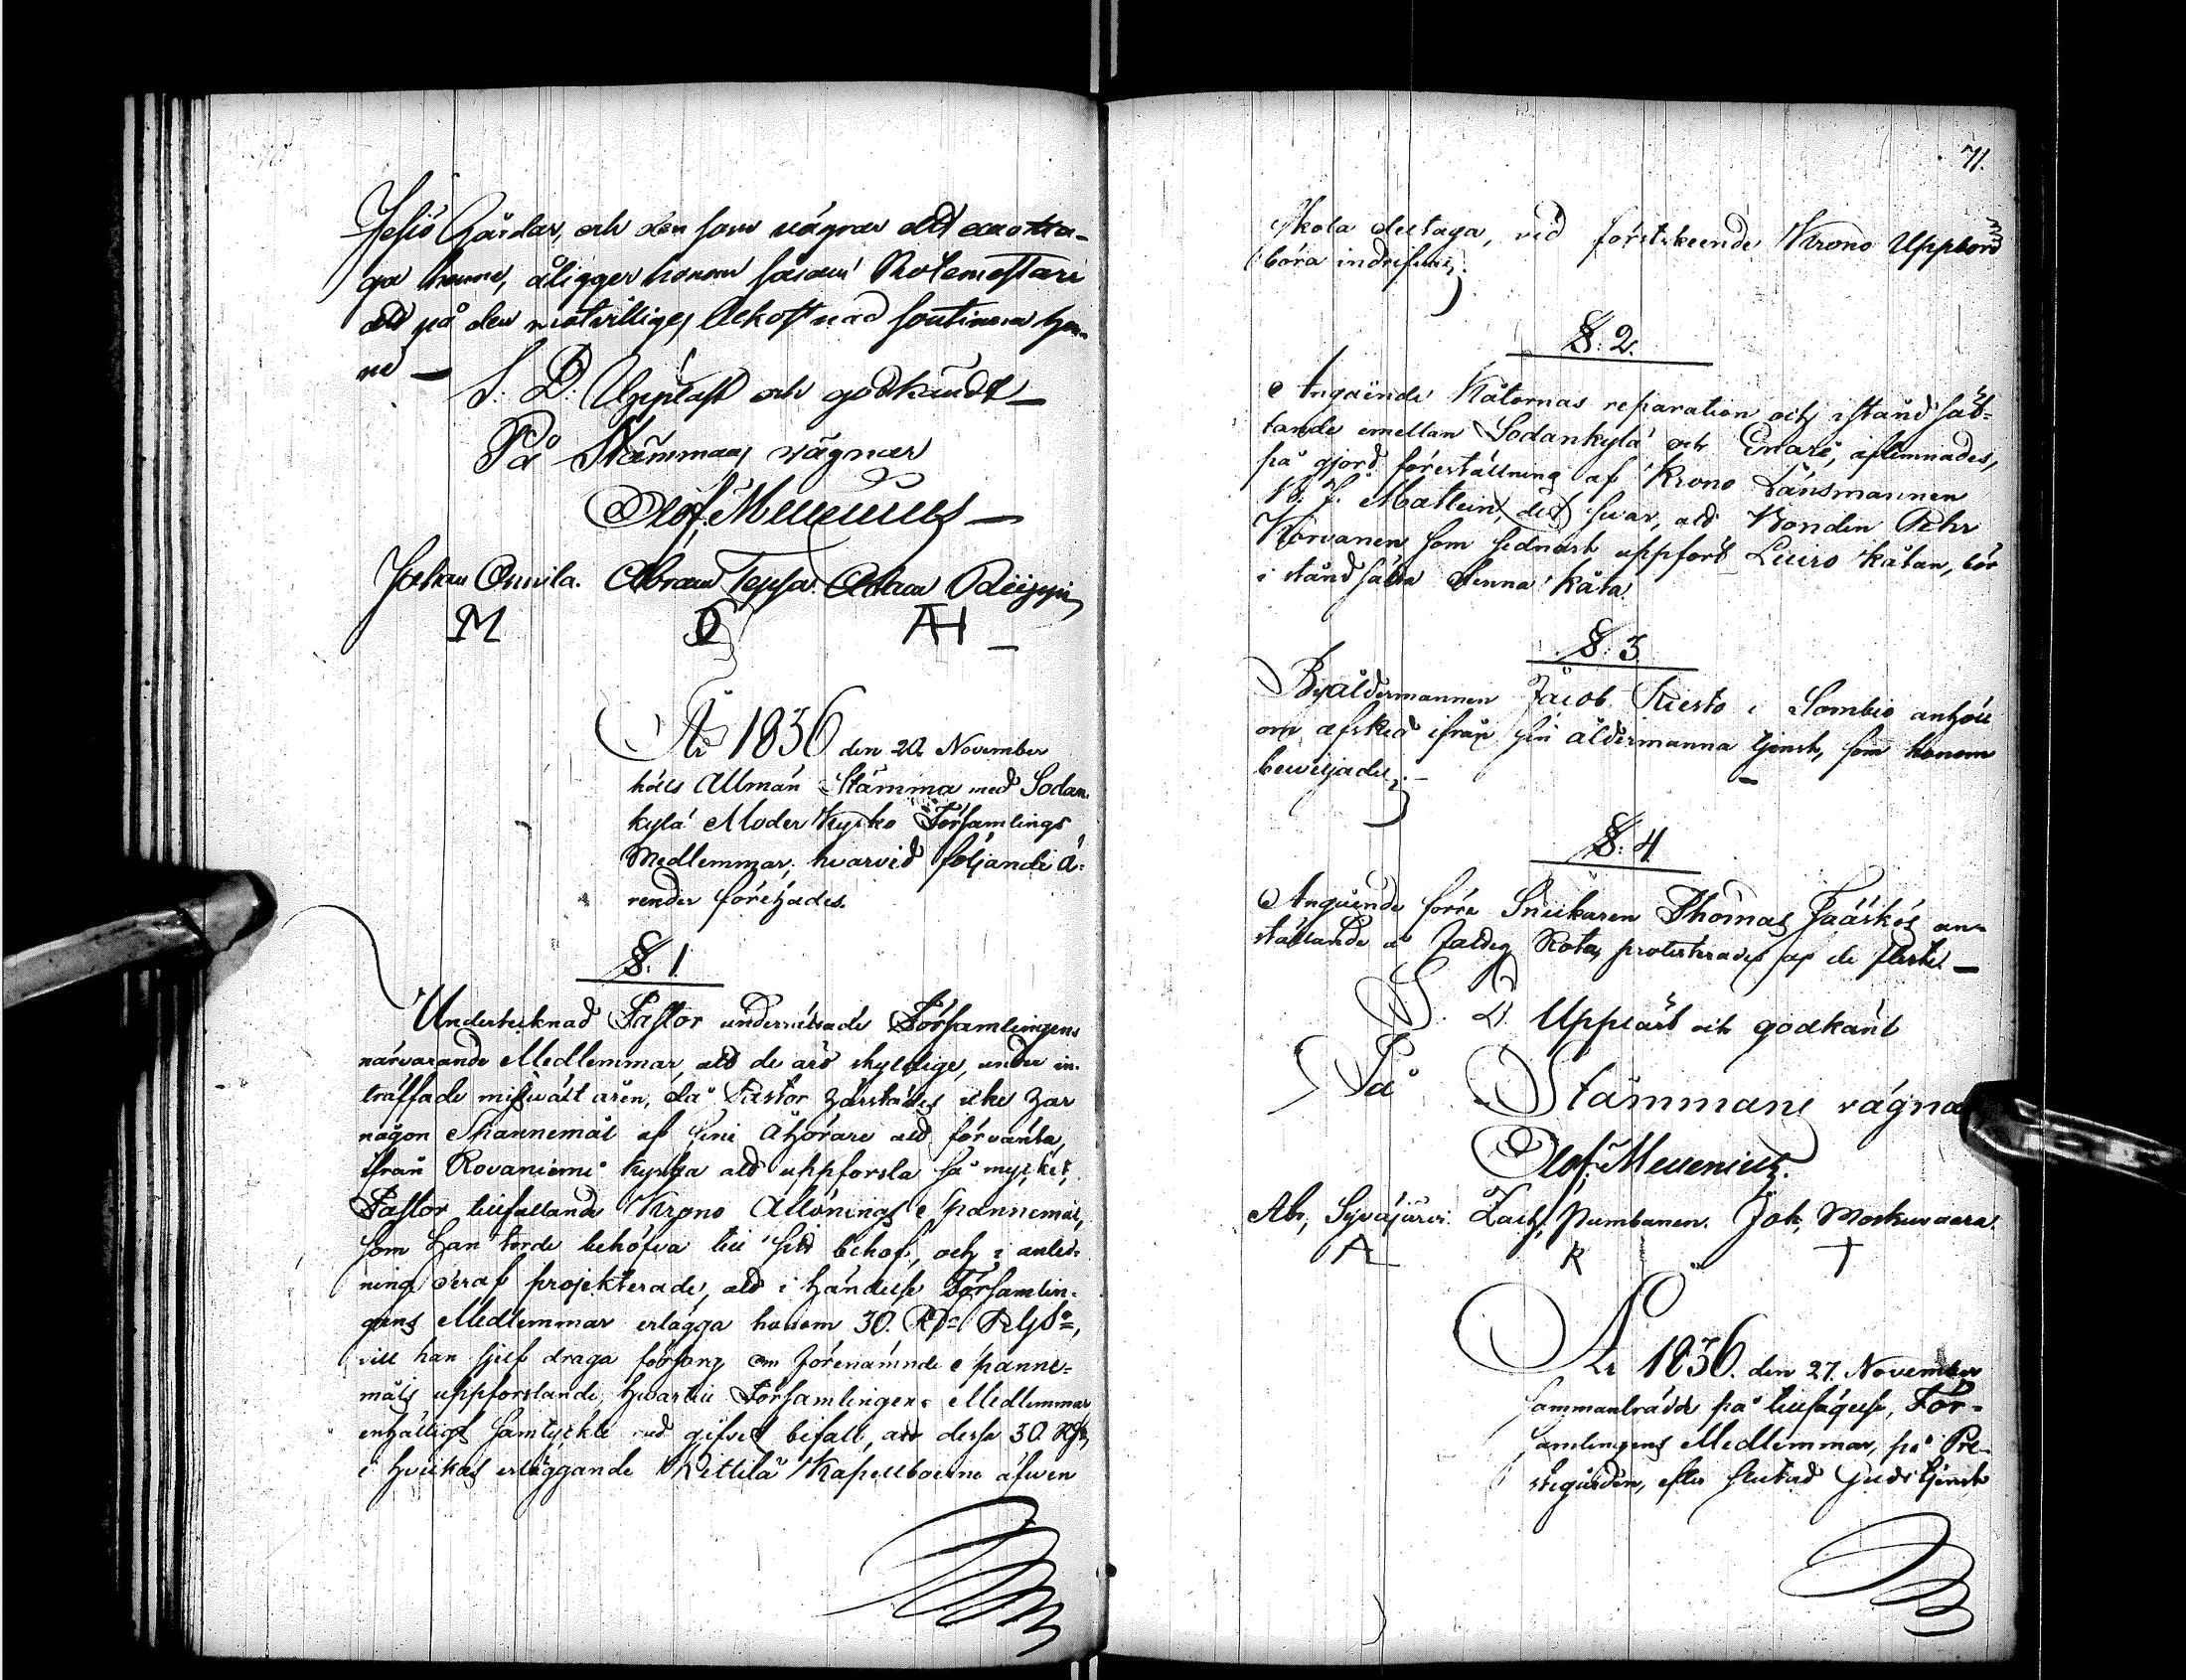 Jesiö Gårdar, och den som vägrar att emotta-
ga henne, åligger honom såsom Rotemästare
att på den motvilliges bekostnad soutinera hen-
ne —
S. D. Uppläst och godkändt —
På Stämmans vägnar
Olof Mecenius —
Johan Onnila. Abram Teppo. Adam
M AH
År 1836 den 20. November
hölls Allmän Stämma med Sodan-
kylä Moder Kyrko Församlings
Medlemmar, hvarvid följande ä-
render förehades.
§. 1.
Undertecknad Pastor underrättade Församlingens
närvarande Medlemmar, att de äro skyldige, under in-
träffade missväxt åren, då Pastor härstädes icke har
någon Spannemål af sine Åhörare att förvänta,
ifrån Rovaniemi kyrka att uppforsla så mycket,
Pastor tillfallande Krono Aflönings Spannemål,
som han torde behöfva till sitt behof, och i anled-
ning deraf projekterade, att i händelse Församlin-
gens Medlemmar erlägga honom 30. Rub.
vill han sjelf draga försorg om förenämnde Spanne-
måls uppforslande; hvartill Församlingens Medlemmar
enhälligt samtyckte med gifvet bifall, att desse 30 Rub.
i hvilkas erläggande Kittilä Kapellboerne äfven
71.
skola deltaga, vid förstskeende Krono Uppbörd
böra indrifvas.
§. 2.
Angående Kåtornas reparation och istånd sät-
tande emellan Sodankylä och Enare, aflemnades,
på gjord föreställning af Krono Länsmannen
Matlein, det svar, att Bonden Pehr
Korvanen som sednast uppfört Luiro kåtan, bör
i stånd sätta denna kåta.
§. 3
Byåldermannen Jacob Kiesto i Sombio anhöll
om afsked ifrån sin åldermanna tjenst, som honom
beviljades. —
§. 4
Angående förre Snickaren Thomas Jääskös an-
ställande å Rota, protesterades af de fleste —
S. D. Uppläst och godkänt
På Stämmans vägnar
Olof Mecenius.
Abr. Syväjärvi. Zach. Pumbanen. Joh. Moskuvaara.
A K +
År 1836. den 27. November
sammanträdde på tillsägelse, För-
samlingens Medlemmar, på Pre-
stegården, efter slutad Gudstjenst